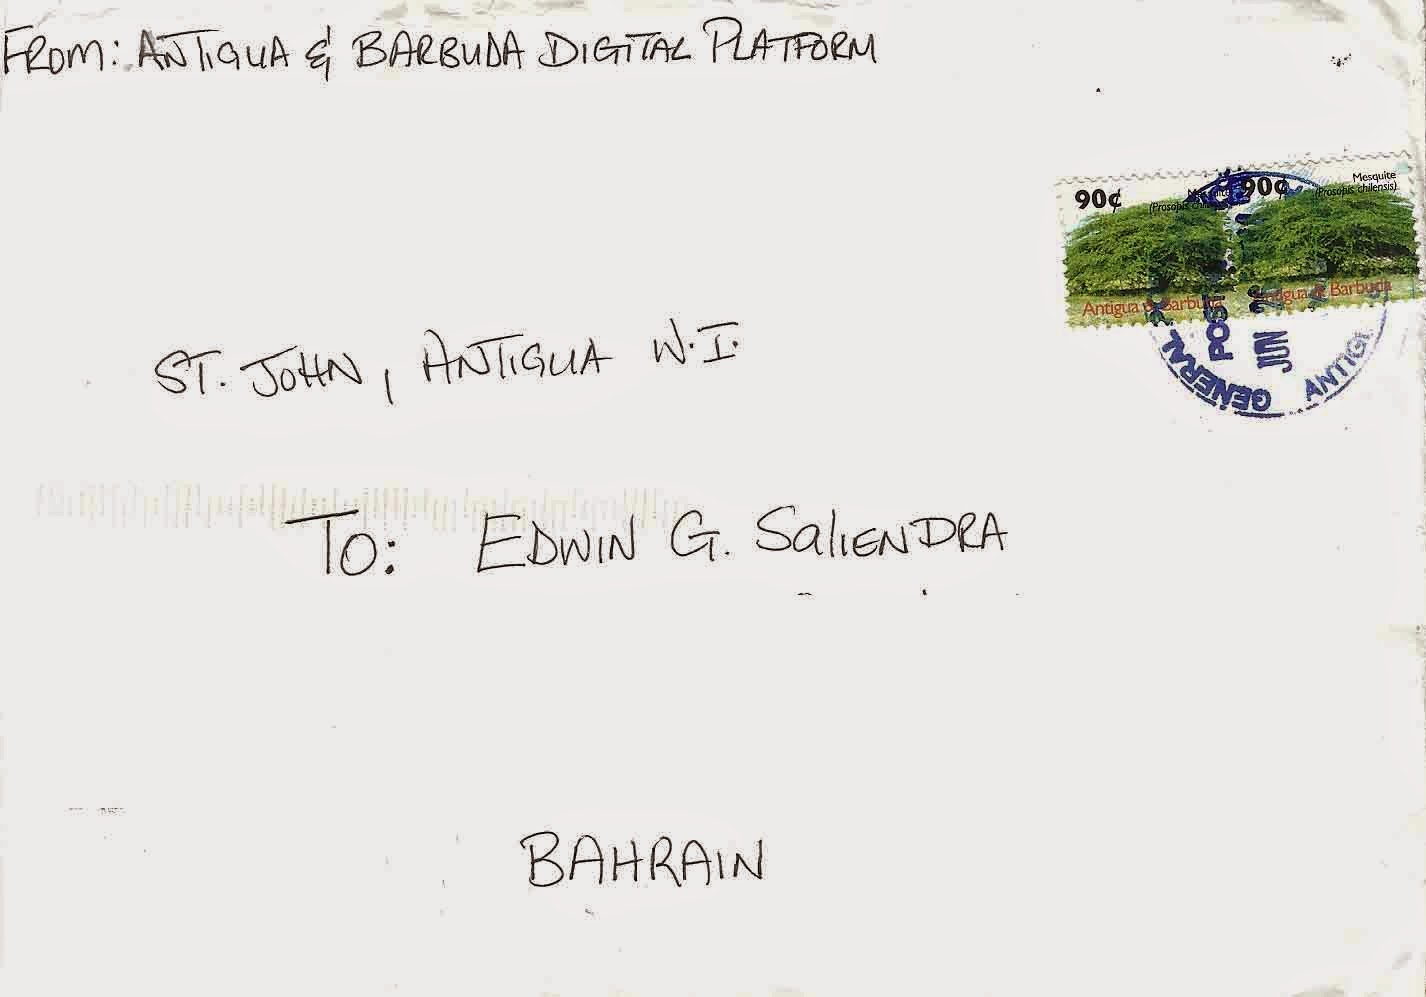 FROM: ANTIGUA & BARBUDA DIGITAL PLATFORM
90¢
90¢
Mesquite
(Prosopis chilensis)
Antigua & Barbuda
Antigua & Barbuda
GENERAL POST
JUN
ANTIG
ST. JOHN, ANTIGUA W.I.
TO: EDWIN G. SALIENDRA
BAHRAIN